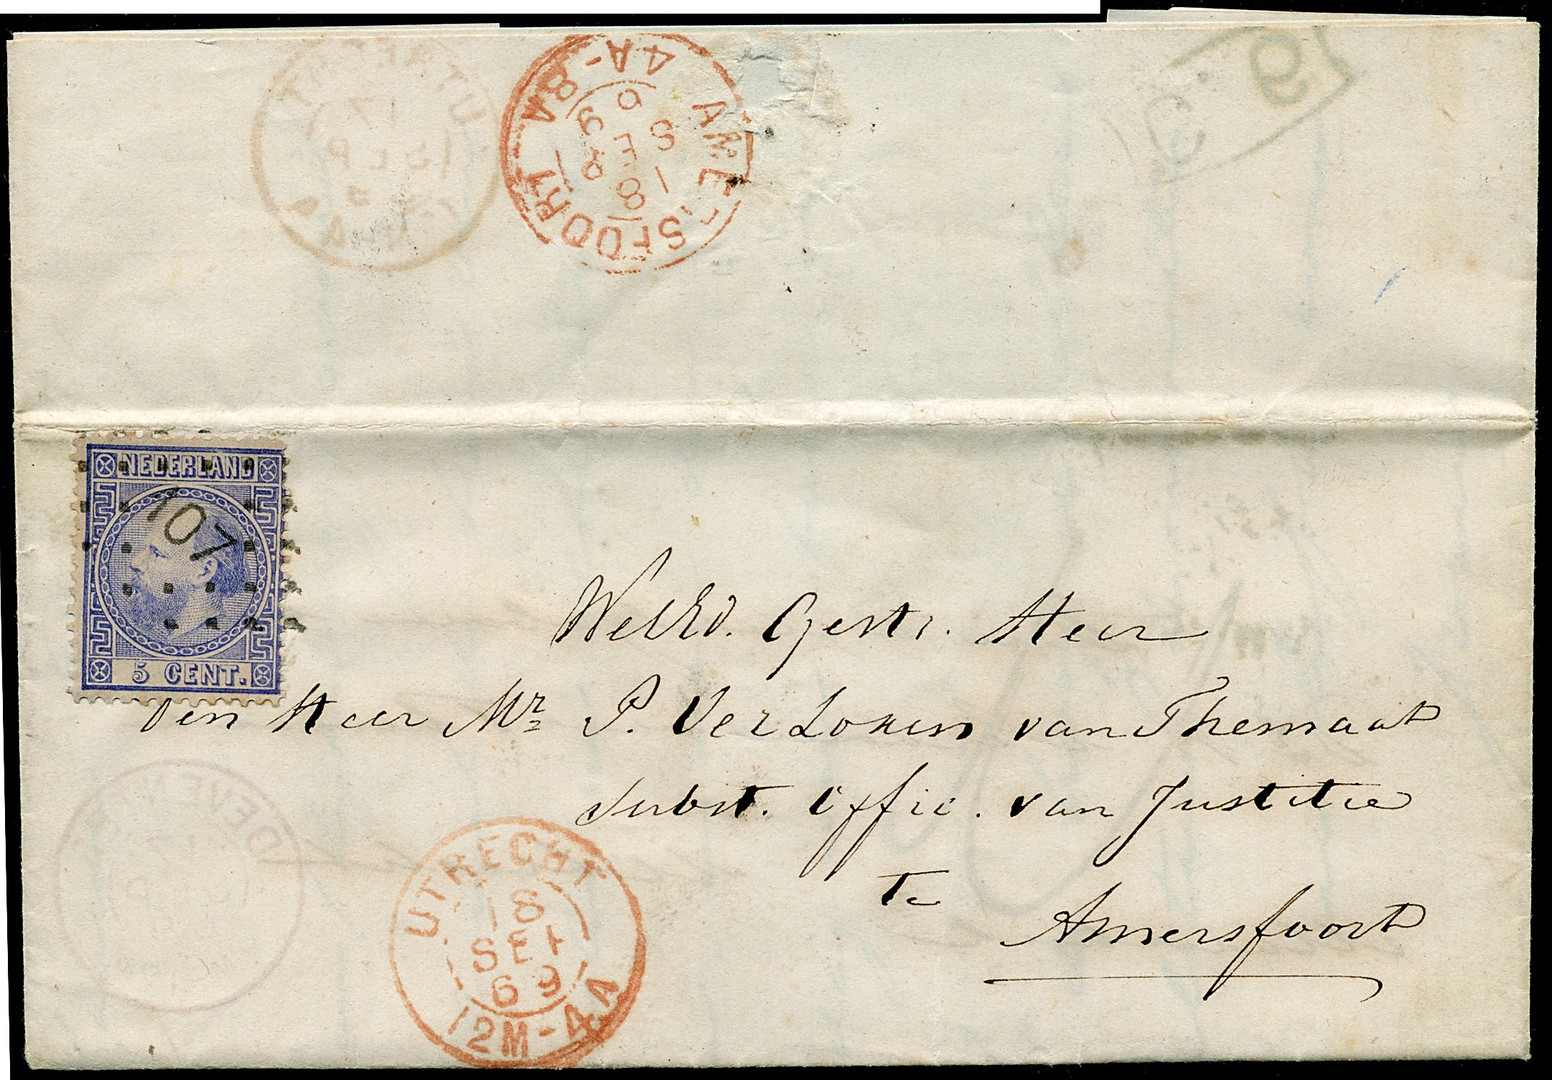 AMERSFOORT
18
SEP
69
4A-8A
9
NEDERLAND
107
5 CENT.
WelEd. Gestr. Heer
Den Heer Mr. P. VerLoren van Themaat
Subst. Offic. van Justitie
te
Amersfoort
UTRECHT
18
SEP
69
12M-4A